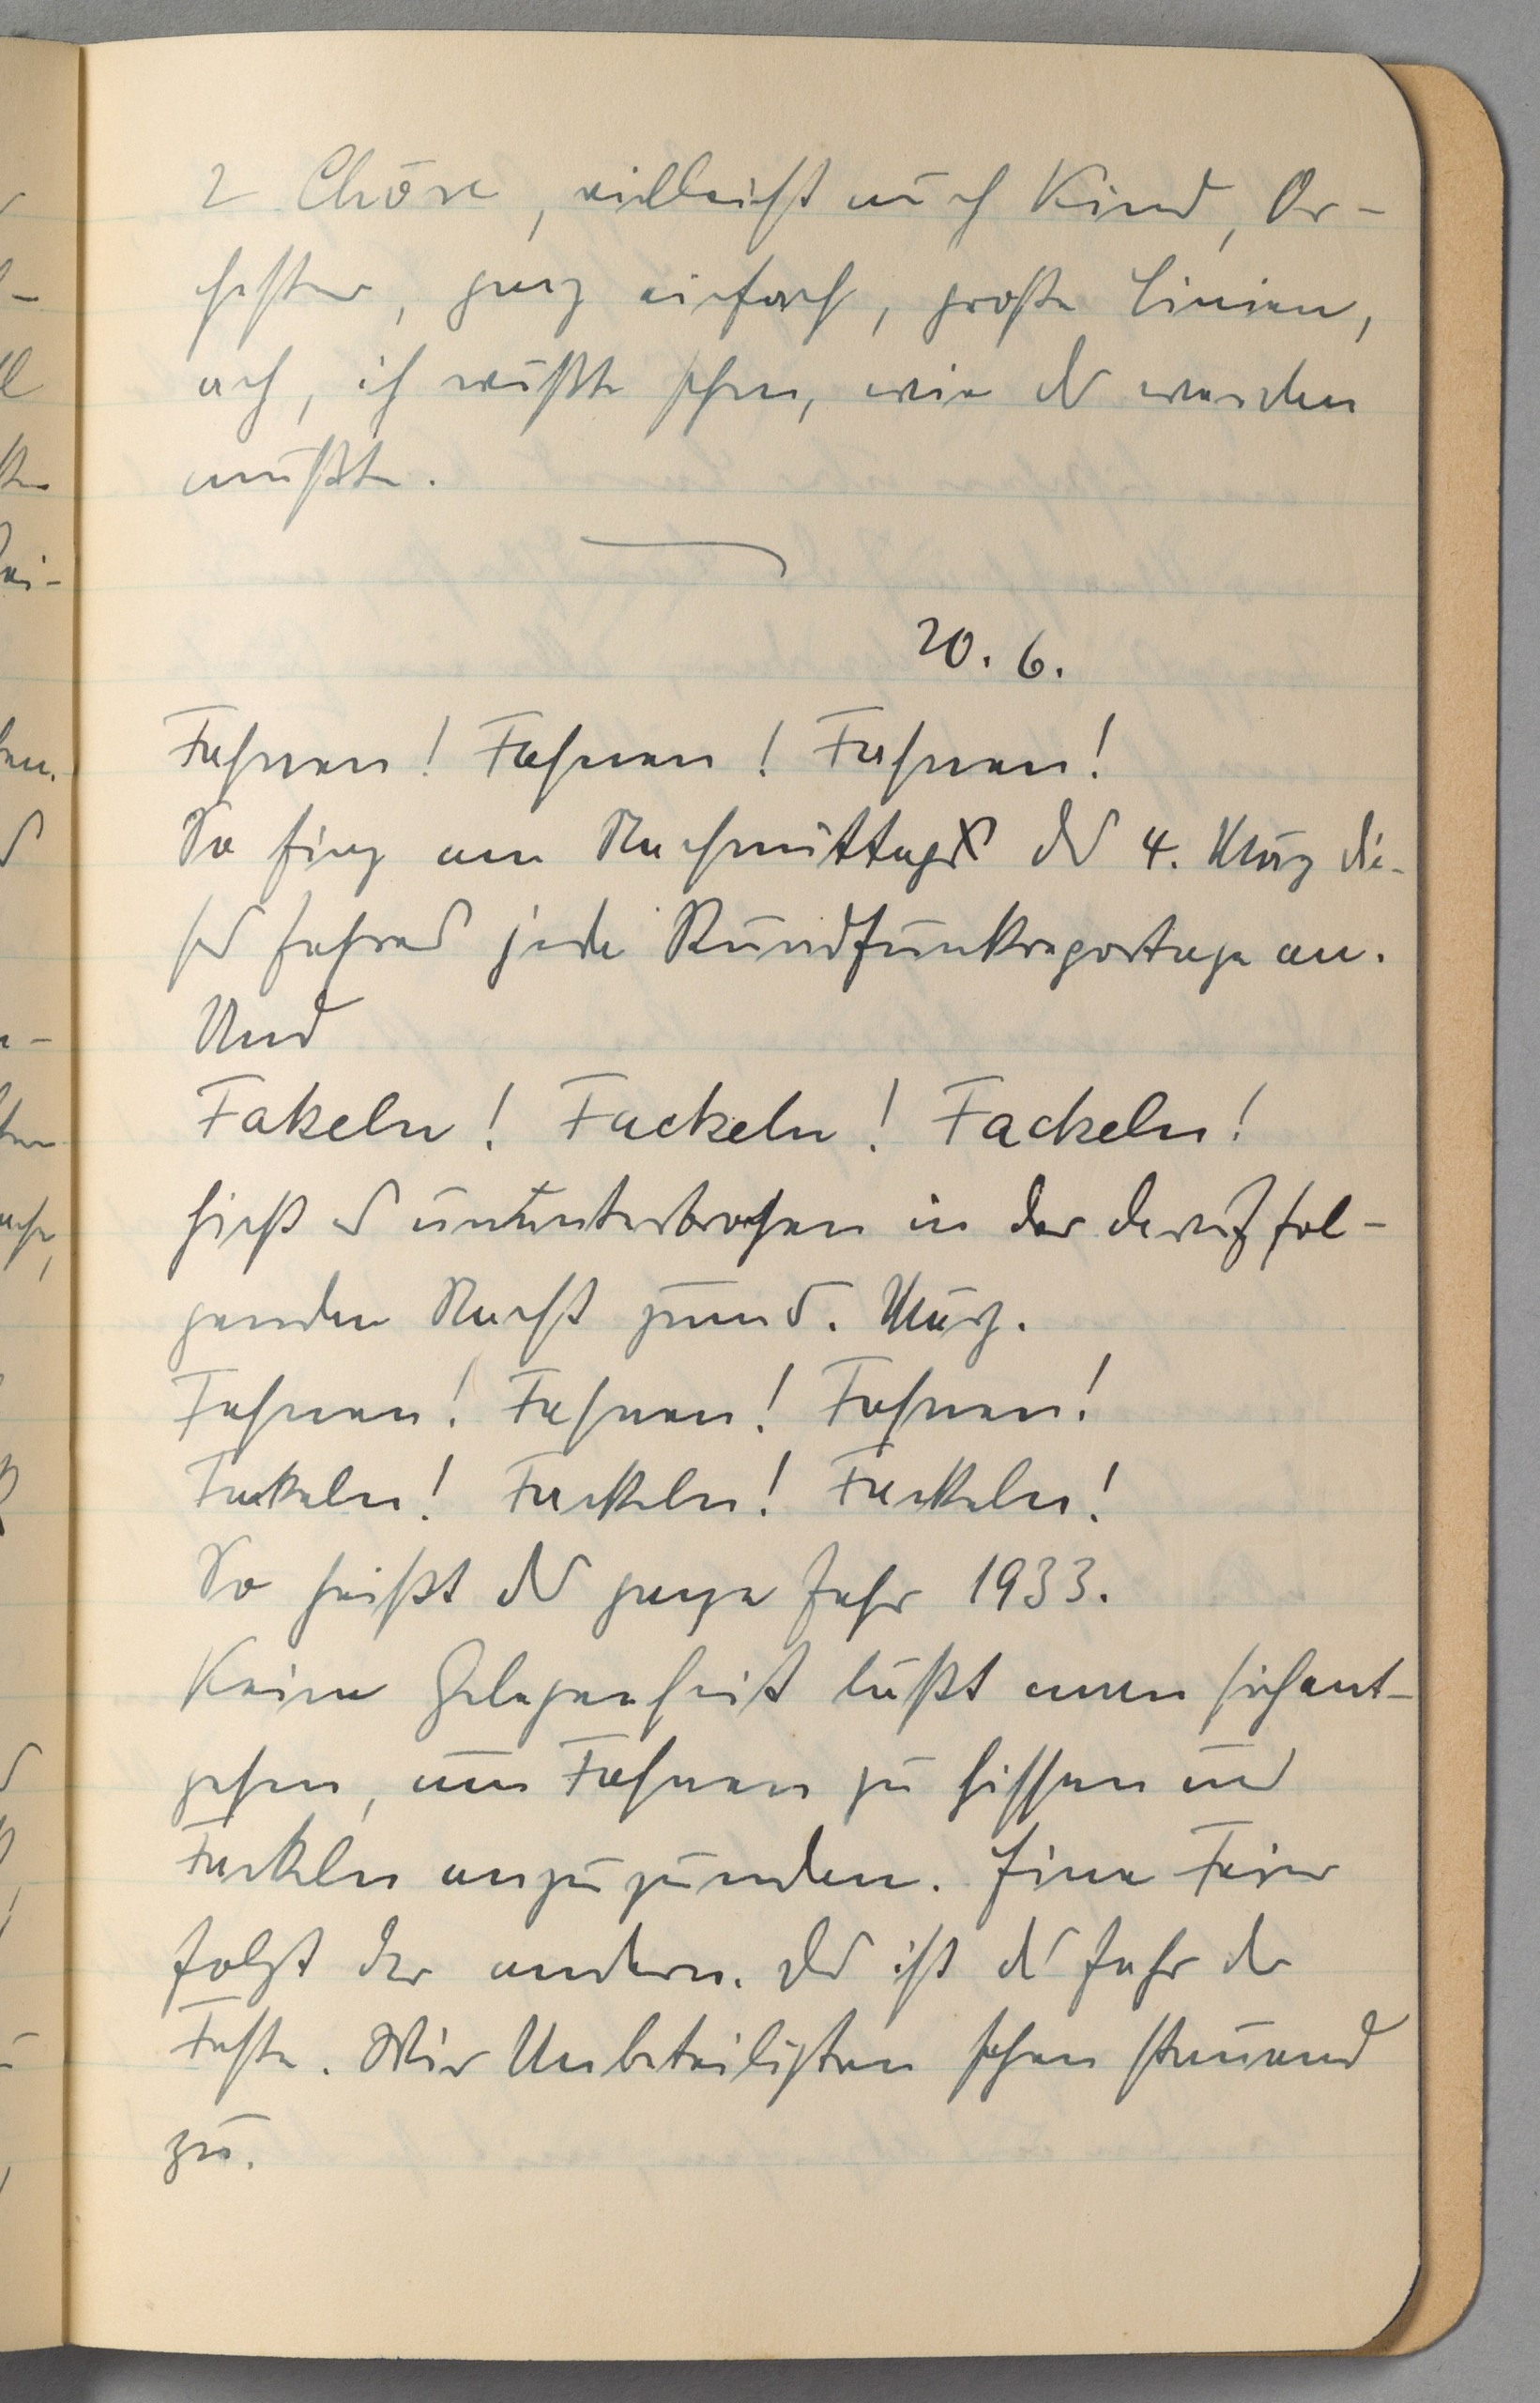 2 Chöre, vielleicht auch Kind, Or-
chester, ganz einfach, große Linien,
ach, ich wüßte schon, wie das werden
müßte.
20. 6.
Fahnen! Fahnen! Fahnen!
So fing am Nachmittag des 4. März die-
ses Jahres jede Rundfunkreportage an.
Und
Fakeln! Fackeln! Fackeln!
hieß es ununterbrochen in der darauf fol-
genden Nacht zum 5. März.
Fahnen! Fahnen! Fahnen!
Fackeln! Fackeln! Fackeln!
So heißt das ganze Jahr 1933.
Keine Gelegenheit läßt man sich ent-
gehen, um Fahnen zu hissen und
Fackeln anzuzünden. Eine Feier
folgt der andern. Es ist das Jahr der
Feste. Wir Unbeteiligten sehen staunend
zu.